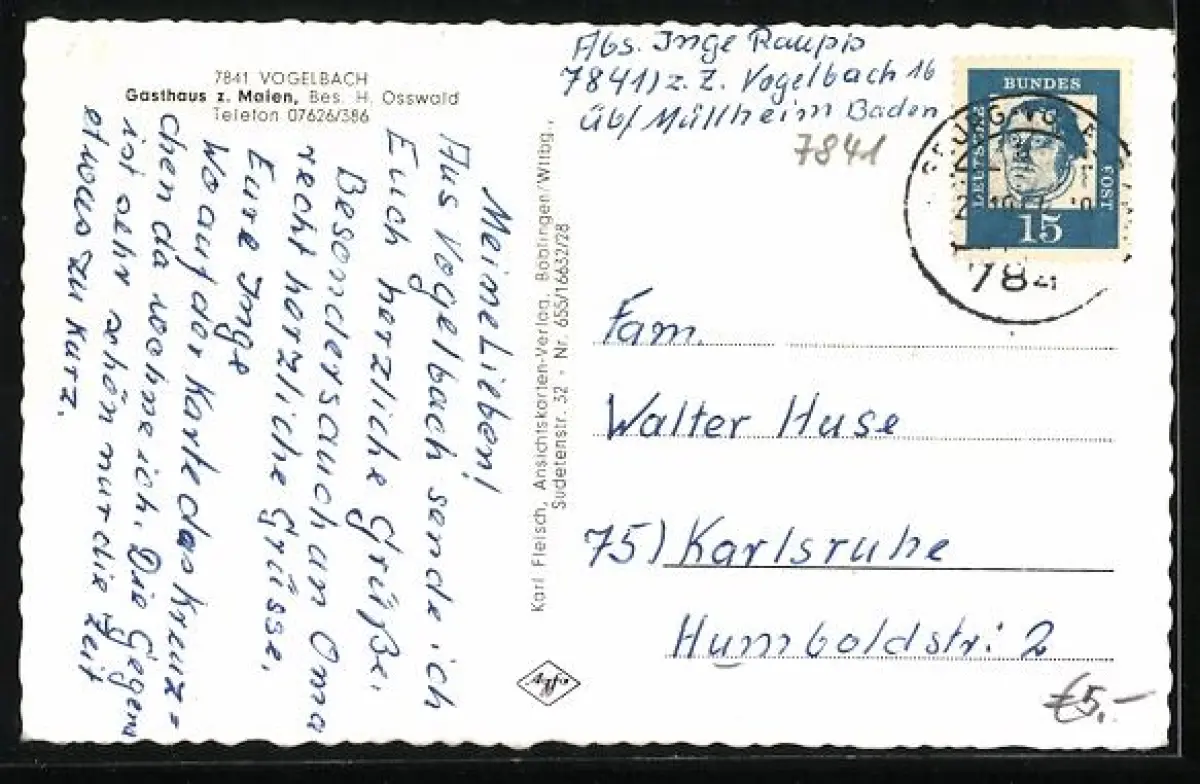 7841 VOGELBACH
Gasthaus z. Maien, Bes. H. Osswald
Telefon 07626/386
Meine Lieben!
Aus Vogelbach sende ich
Euch herzliche Grüße.
Besonders auch an Oma
recht herzliche Grüsse.
Eure Inge
Wo auf der Karte das Kreuz=
chen da wohne ich. Die Gegend
ist sehr schön nur die Zeit
etwas zu kurz.
Karl Fleisch, Ansichtskarten-Verlag, Böblingen/Wttbg.,
Sudetenstr. 32 - Nr. 655/16632/28
Agfa
Abs. Inge Raupp
7841) z. Z. Vogelbach 16
üb/ Müllheim Baden
7841
DEUTSCHE
BUNDES
POST
15
784
Fam.
Walter Huse
75) Karlsruhe
Humboldstr. 2
€5,-